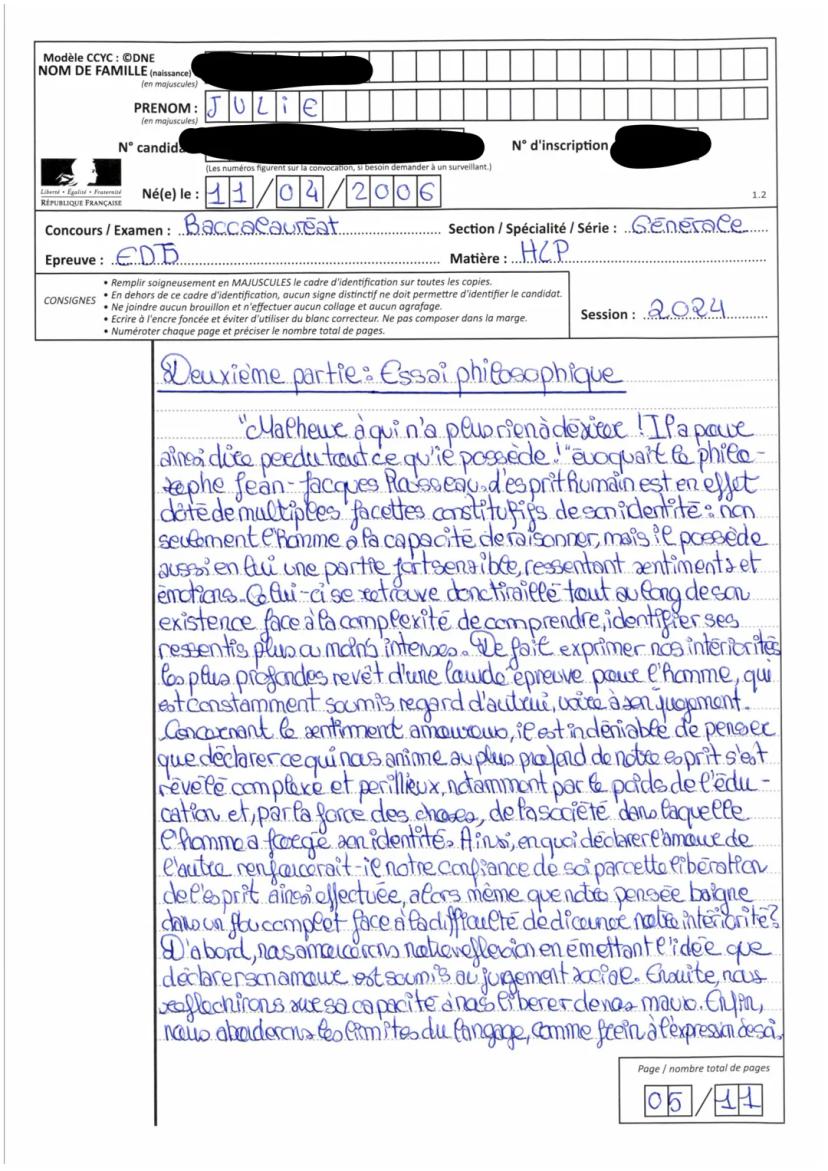 Modèle CCYC : ©DNE
NOM DE FAMILLE (naissance)
(en majuscules)
PRENOM : JULIE
(en majuscules)
N° candid
N° d'inscription
(Les numéros figurent sur la convocation, si besoin demander à un surveillant.)
Liberté • Égalité • Fraternité
RÉPUBLIQUE FRANÇAISE
Né(e) le : 11/04/2006
1.2
Concours / Examen : Baccalauréat Section / Spécialité / Série : Générale
Epreuve : EDS Matière : HLP
CONSIGNES
• Remplir soigneusement en MAJUSCULES le cadre d'identification sur toutes les copies.
• En dehors de ce cadre d'identification, aucun signe distinctif ne doit permettre d'identifier le candidat.
• Ne joindre aucun brouillon et n'effectuer aucun collage et aucun agrafage.
• Ecrire à l'encre foncée et éviter d'utiliser du blanc correcteur. Ne pas composer dans la marge.
• Numéroter chaque page et préciser le nombre total de pages.
Session : 2024
Deuxième partie : Essai philosophique
"Malheur à qui n'a plus rien à désirer ! Il a pour
ainsi dire perdu tout ce qu'il possède !" évoquait le philo-
sophe Jean-Jacques Rousseau. L'esprit humain est en effet
doté de multiples facettes constitutifs de son identité : non
seulement l'homme a la capacité de raisonner, mais il possède
aussi en lui une partie fort sensible, ressentant sentiments et
émotions. Celui-ci se retrouve donc tiraillé tout au long de son
existence face à la complexité de comprendre, identifier ses
ressentis plus ou moins intenses. De fait exprimer nos intériorités
les plus profondes revêt d'une lourde épreuve pour l'homme, qui
est constamment soumis regard d'autrui, voire à son jugement.
Concernant le sentiment amoureux, il est indéniable de penser
que déclarer ce qui nous anime au plus profond de notre esprit s'est
révélé complexe et perillieux, notamment par le poids de l'édu-
cation et, par la force des choses, de la société dans laquelle
l'homme a forgé son identité. Ainsi, en quoi déclarer l'amour de
l'autre renforcerait-il notre confiance de soi par cette libération
de l'esprit ainsi effectuée, alors même que notre pensée baigne
dans un flou complet face à la difficulté de dénoncer notre intériorité ?
D'abord, nous amorcerons notre reflexion en émettant l'idée que
déclarer son amour est soumis au jurgement social. Ensuite, nous
reflechirons sur sa capacité à nous liberer de nos maux. Enfin,
nous aborderons les limites du langage, comme frein à l'expression de soi.
Page / nombre total de pages
05/11